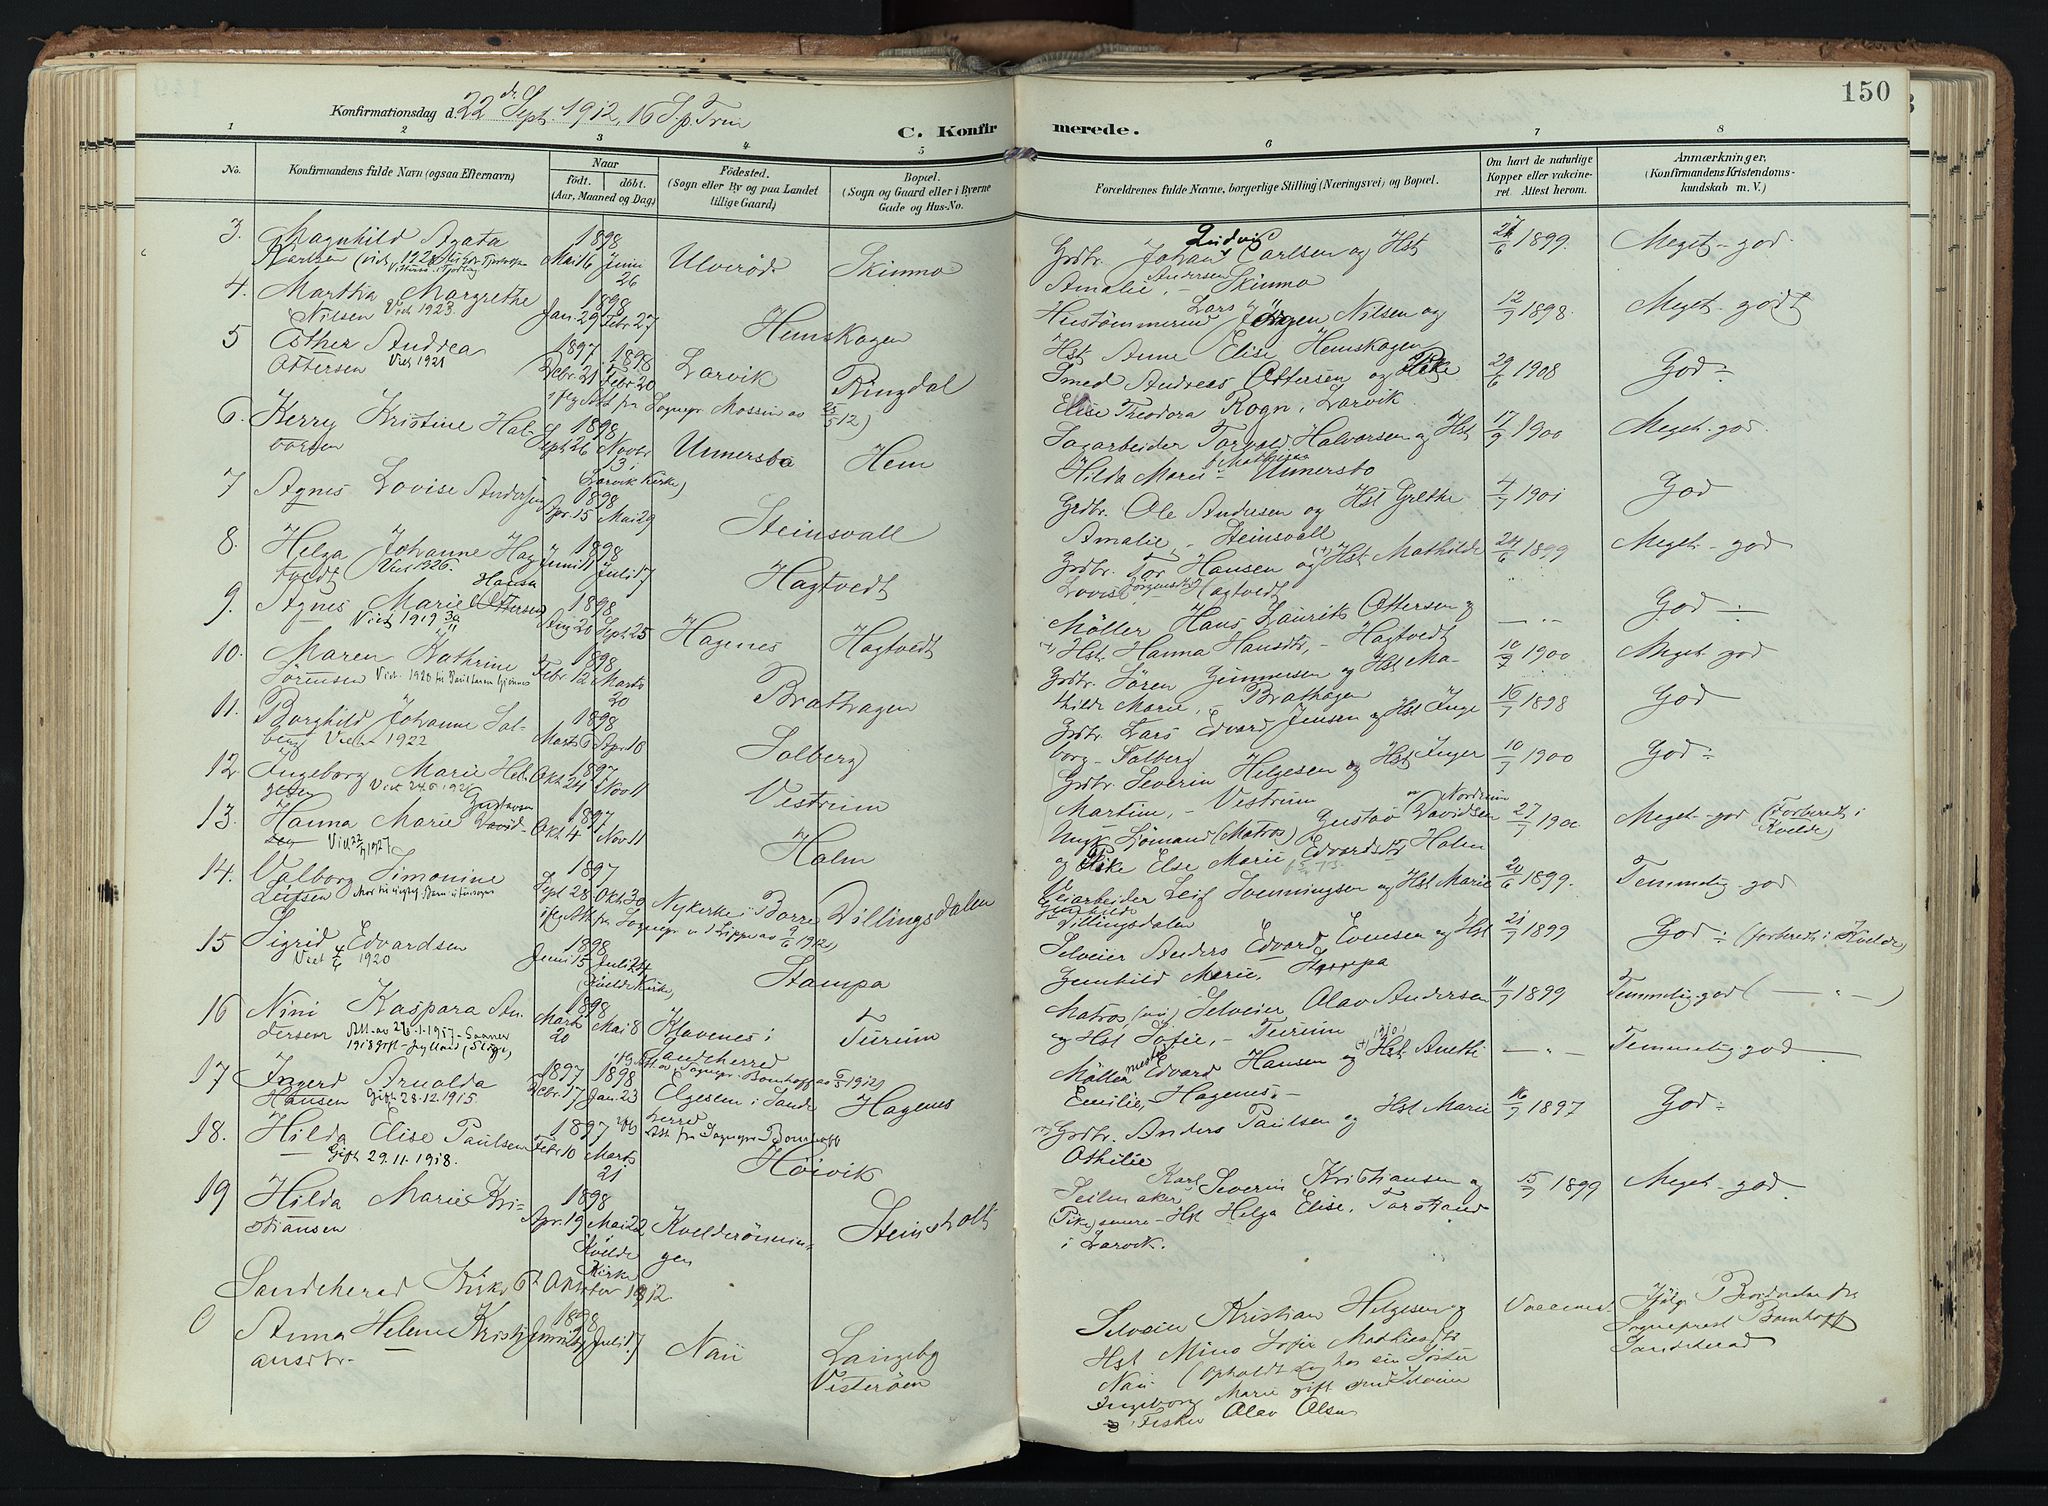 150
Konfirmationsdag d. 22 d. Sept. 1912, 16 S. p. Trin
C. Konfirmerede.
1 2 3 4 5 6 7 8
No.
Konfirmandens fulde Navn (ogsaa Efternavn)
Naar
født. døbt.
(Aar, Maaned og Dag)
Fødested.
(Sogn eller By og paa Landet
tillige Gaard)
Bopæl.
(Sogn og Gaard eller i Byerne
Gade og Hus-No.
Forældrenes fulde Navne, borgerlige Stilling (Næringsvei) og Bopæl.
Om havt de naturlige
Kopper eller vakcine-
ret Attest herom.
Anmærkninger.
(Konfirmandens Kristendoms-
kundskab m. V.)
3. Magnhild Agata
Karlsen (viet 1928
1898
Mai 16 Juni 26
Ulverød Skinmo
Grdbr. Johan Ludvig Carlsen og Hst
Amalie Andersen - Skinmo
27/6 1899. Meget-god.
4. Marthia Margrethe
Nilsen Viet 1923.
1898
Jan. 29 Febr. 27
Hemskogen
Hustømmermand Lars Jørgen Nilsen og
Hst Anne Elise Hemskogen
12/9 1898. Meget-godt
5 Esther Andrea
Ottersen Viet 1921
1897 1898
Debr. 21 Febr 20
Larvik Ringdal
iflg Att fra Sognepr Mossin av 25/5 12)
Smed Andreas Ottersen og Pike
Elise Theodora Rogn, Larvik
29/6 1908 God÷
6. Kerry Kristine Hal-
vorsen
1898
Sept. 26 Novbr 13 i
Larvik Kirke)
Unnersbo Hem
Sagarbeider Torvald Halvorsen og Hst
Hilda Marie Mathisen - Unnersbo
17/9 1900 Meget-god.
7 Agnes Lovise Andersen
1898
Apr. 15 Mai 29
Steinsvall
Grdbr. Ole Andersen og Hst Grethe
Amalie - Steinsvall
4/7 1901 God
8. Helga Johanne Hag-
tvedt Viet 1926.
1898
Juni 11 Juli 17
Hagtvedt
Grdbr. Tor Hansen og (+) Hst Mathilde
Lovise Jørgensdtr Hagtvedt
24/6 1899 Meget-god
9. Agnes Marie Hansen Ottersen
Viet 1919 30/11
1898
Aug 20 Sept. 25
Hagenes Hagtvedt
Møller Hans Laurits Ottersen og
Hst. Hanna Hansdtr, - Hagtvedt
— „ — God ÷
10. Maren Kathrine
Sørensen Viet. 1920
1898
Febr 12 Marts 20
Brathagen
Grdbr. Søren Gunnersen og Hst Ma-
thilde Marie, Brathagen
10/7 1900 Meget-god
11. Borghild Johanne Sol-
berg Viet 1922
1898
Marts 6 Apr. 10
Solberg
Grdbr. Lars Edvard Jensen og Hst Inge
borg - Solberg
16/7 1898 God
12. Ingeborg Marie Hel-
gesen
1897
Okt 24 Nov 11
Vestrum
Grdbr. Severin Helgesen og Hst Inger
Martine, - Vestrum
10/7 1900 God÷
13. Hanna Marie Gustavsen David-
sen Viet 22/9 1927
1897
Okt. 4 Nov 11
Holm
Ungk. Sømand (Matros) Gustav Davidsen av Nordrum
og Pike Else Marie Edvardsdtr Holm
27/7 1900 Meget-god (Forberedt i
Kvelde)
14. Valborg Simonine
Leifsen
1897
Sept 28 Okt 30
Nykirke i Borre Dillingsdalen
Veiarbeider Leif Svenningsen og Hst Marie
Gunhilde
Dillingsdalen
20/6 1899. Temmelig god
15 Sigrid Edvardsen
Viet 1920
1898
Juni 15 Juli 24
(Kvelde Kirke)
Stampa
Selveier Anders Edvard Evensen og Hst
Gunhild Marie, Stampa
21/7 1899 God ÷ (forberedt i Kvelde)
16 Nini Kaspara An-
dersen Att. av 26.1.1917
1898
Marts 20 Mai 8
Klavenes i
Sandeherred
Turum
Matros, (nu) Selveier Olav Andersen
og Hst Sofie, - Teirum
11/7 1899 Temmelig god ( — „ — )
17 Ingerd Arnolda
Hansen Gift 28.12.1915
1897 1898
Debr. 17 Jan. 23
Elgesem i Sande
herred
Hagenes
Møller Edvard Hansen og (+ 1910) Hst. Anetti
Emilie, Hagenes, -
— „ — Temmelig god
18. Hilda Elise Paulsen
Gift 29.11.1918.
1897
Febr 10 Marts 21
Høivik
Grdbr. Anders Paulsen og Hst Marie
Othilie
16/7 1897 God÷
19 Hilda Marie Kri-
stiansen
1898
Apr. 19 Mai 22
Kvelde
Kirke
Kvelderønnin-
gen
Steinsholt
Seilmaker Karl Severin Kristiansen og
(Pike) senere - Hst Helga Elise, Torstrand
i Larvik.
15/7 1899 Meget-god.
Sandeherad Kirke 6te Oktober 1912.
0 Anna Helene Kristi-
ansdtr.
1898
Juli 17
Nau
Langeby
Vesterøen
Selveier Kristian Helgesen og
Hst Mina Sofie Mathiasdtr
Nau (opholdt sig hos sin Søster
Ingeborg Marie gift med Selveier
og Fisker Olav Olsen
Vaccined.
Ifølge Brevdatum fra
Sogneprest Bomhoff
Sandeherad